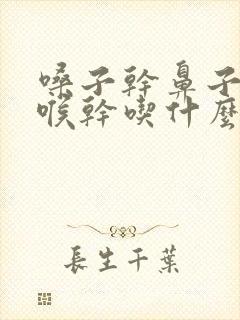 嗓子幹鼻子
喉幹喫什麼
長生千葉